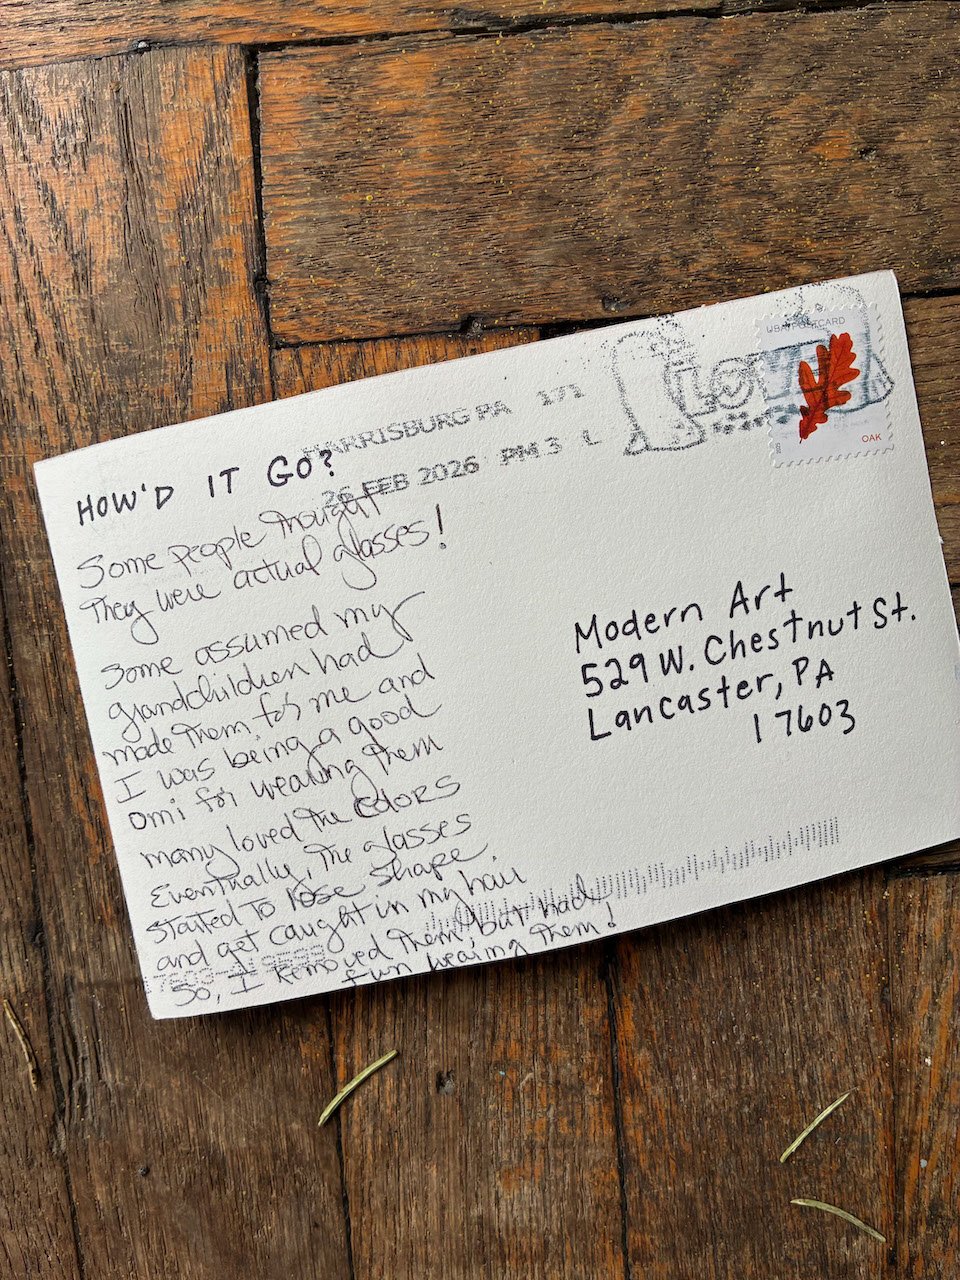 HARRISBURG PA 171
26 FEB 2026 PM 3 L
LOVE
USA/POSTCARD
OAK
HOW'D IT GO?
Some people thought
they were actual glasses!
Some assumed my
grandchildren had
made them for me and
I was being a good
omi for wearing them
many loved the colors
Eventually, the glasses
started to lose shape
and get caught in my hair.
So, I removed them but had
fun wearing them!
Modern Art
529 W. Chestnut St.
Lancaster, PA
17603